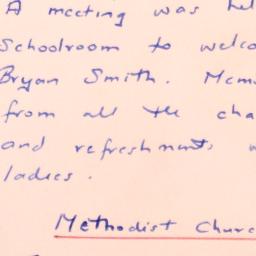 A meeting was hel
Schoolroom to welco
Bryan Smith. Mem
from all the cha
and refreshments
ladies.
Methodist Churc